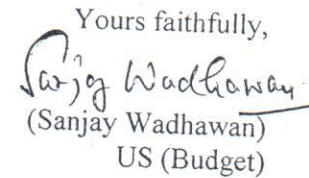 Yours faithfully,
Sanjay Wadhawan
(Sanjay Wadhawan)
US (Budget)